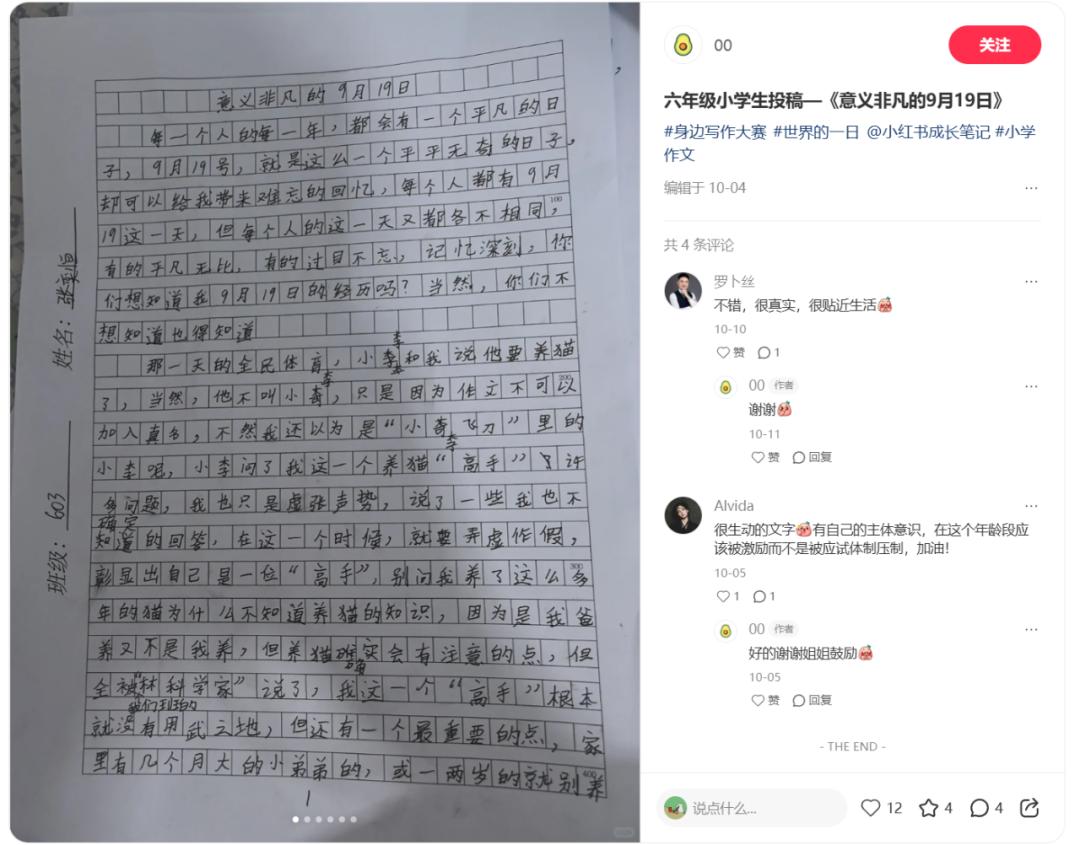 意义非凡的9月19日
每一个人的每一年，都会有一个平凡的日
子，9月19号，就是这么一个平平无奇的日子，
却可以给我带来难忘的回忆，每个人都有9月
19这一天，但每个人的这一天又都各不相同，
100
有的平凡无比，有的过目不忘，记忆深刻，你
们想知道我9月19日的经历吗？当然，你们不
想知道也得知道
李
那一天的全民体育，小李和我说他要养猫
李
了，当然，他不叫小李，只是因为作文不可以
200
加入真名，不然我还以为是“小李飞刀”里的
李
小李呢，小李问了我这一个养猫“高手”许
多问题，我也只是虚张声势，说了一些我也不
确定
知道的回答，在这一个时候，就要弄虚作假，
彰显出自己是一位“高手”，别问我养了这么多
300
年的猫为什么不知道养猫的知识，因为是我爸
养又不是我养，但养猫确实会有注意的点，但
确
全被“林科学家”说了，我这一个“高手”根本
我们班的
就没有用武之地，但还有一个最重要的点，家
里有几个月大的小弟弟的，或一两岁的就别养
400
1
姓名：
班级：603
00
关注
六年级小学生投稿—《意义非凡的9月19日》
#身边写作大赛 #世界的一日 @小红书成长笔记 #小学
作文
编辑于 10-04
共 4 条评论
罗卜丝
不错，很真实，很贴近生活
10-10
赞 1
00 作者
谢谢
10-11
赞 回复
Alvida
很生动的文字有自己的主体意识，在这个年龄段应
该被激励而不是被应试体制压制，加油！
10-05
1 1
00 作者
好的谢谢姐姐鼓励
10-05
赞 回复
- THE END -
说点什么...
12 4 4